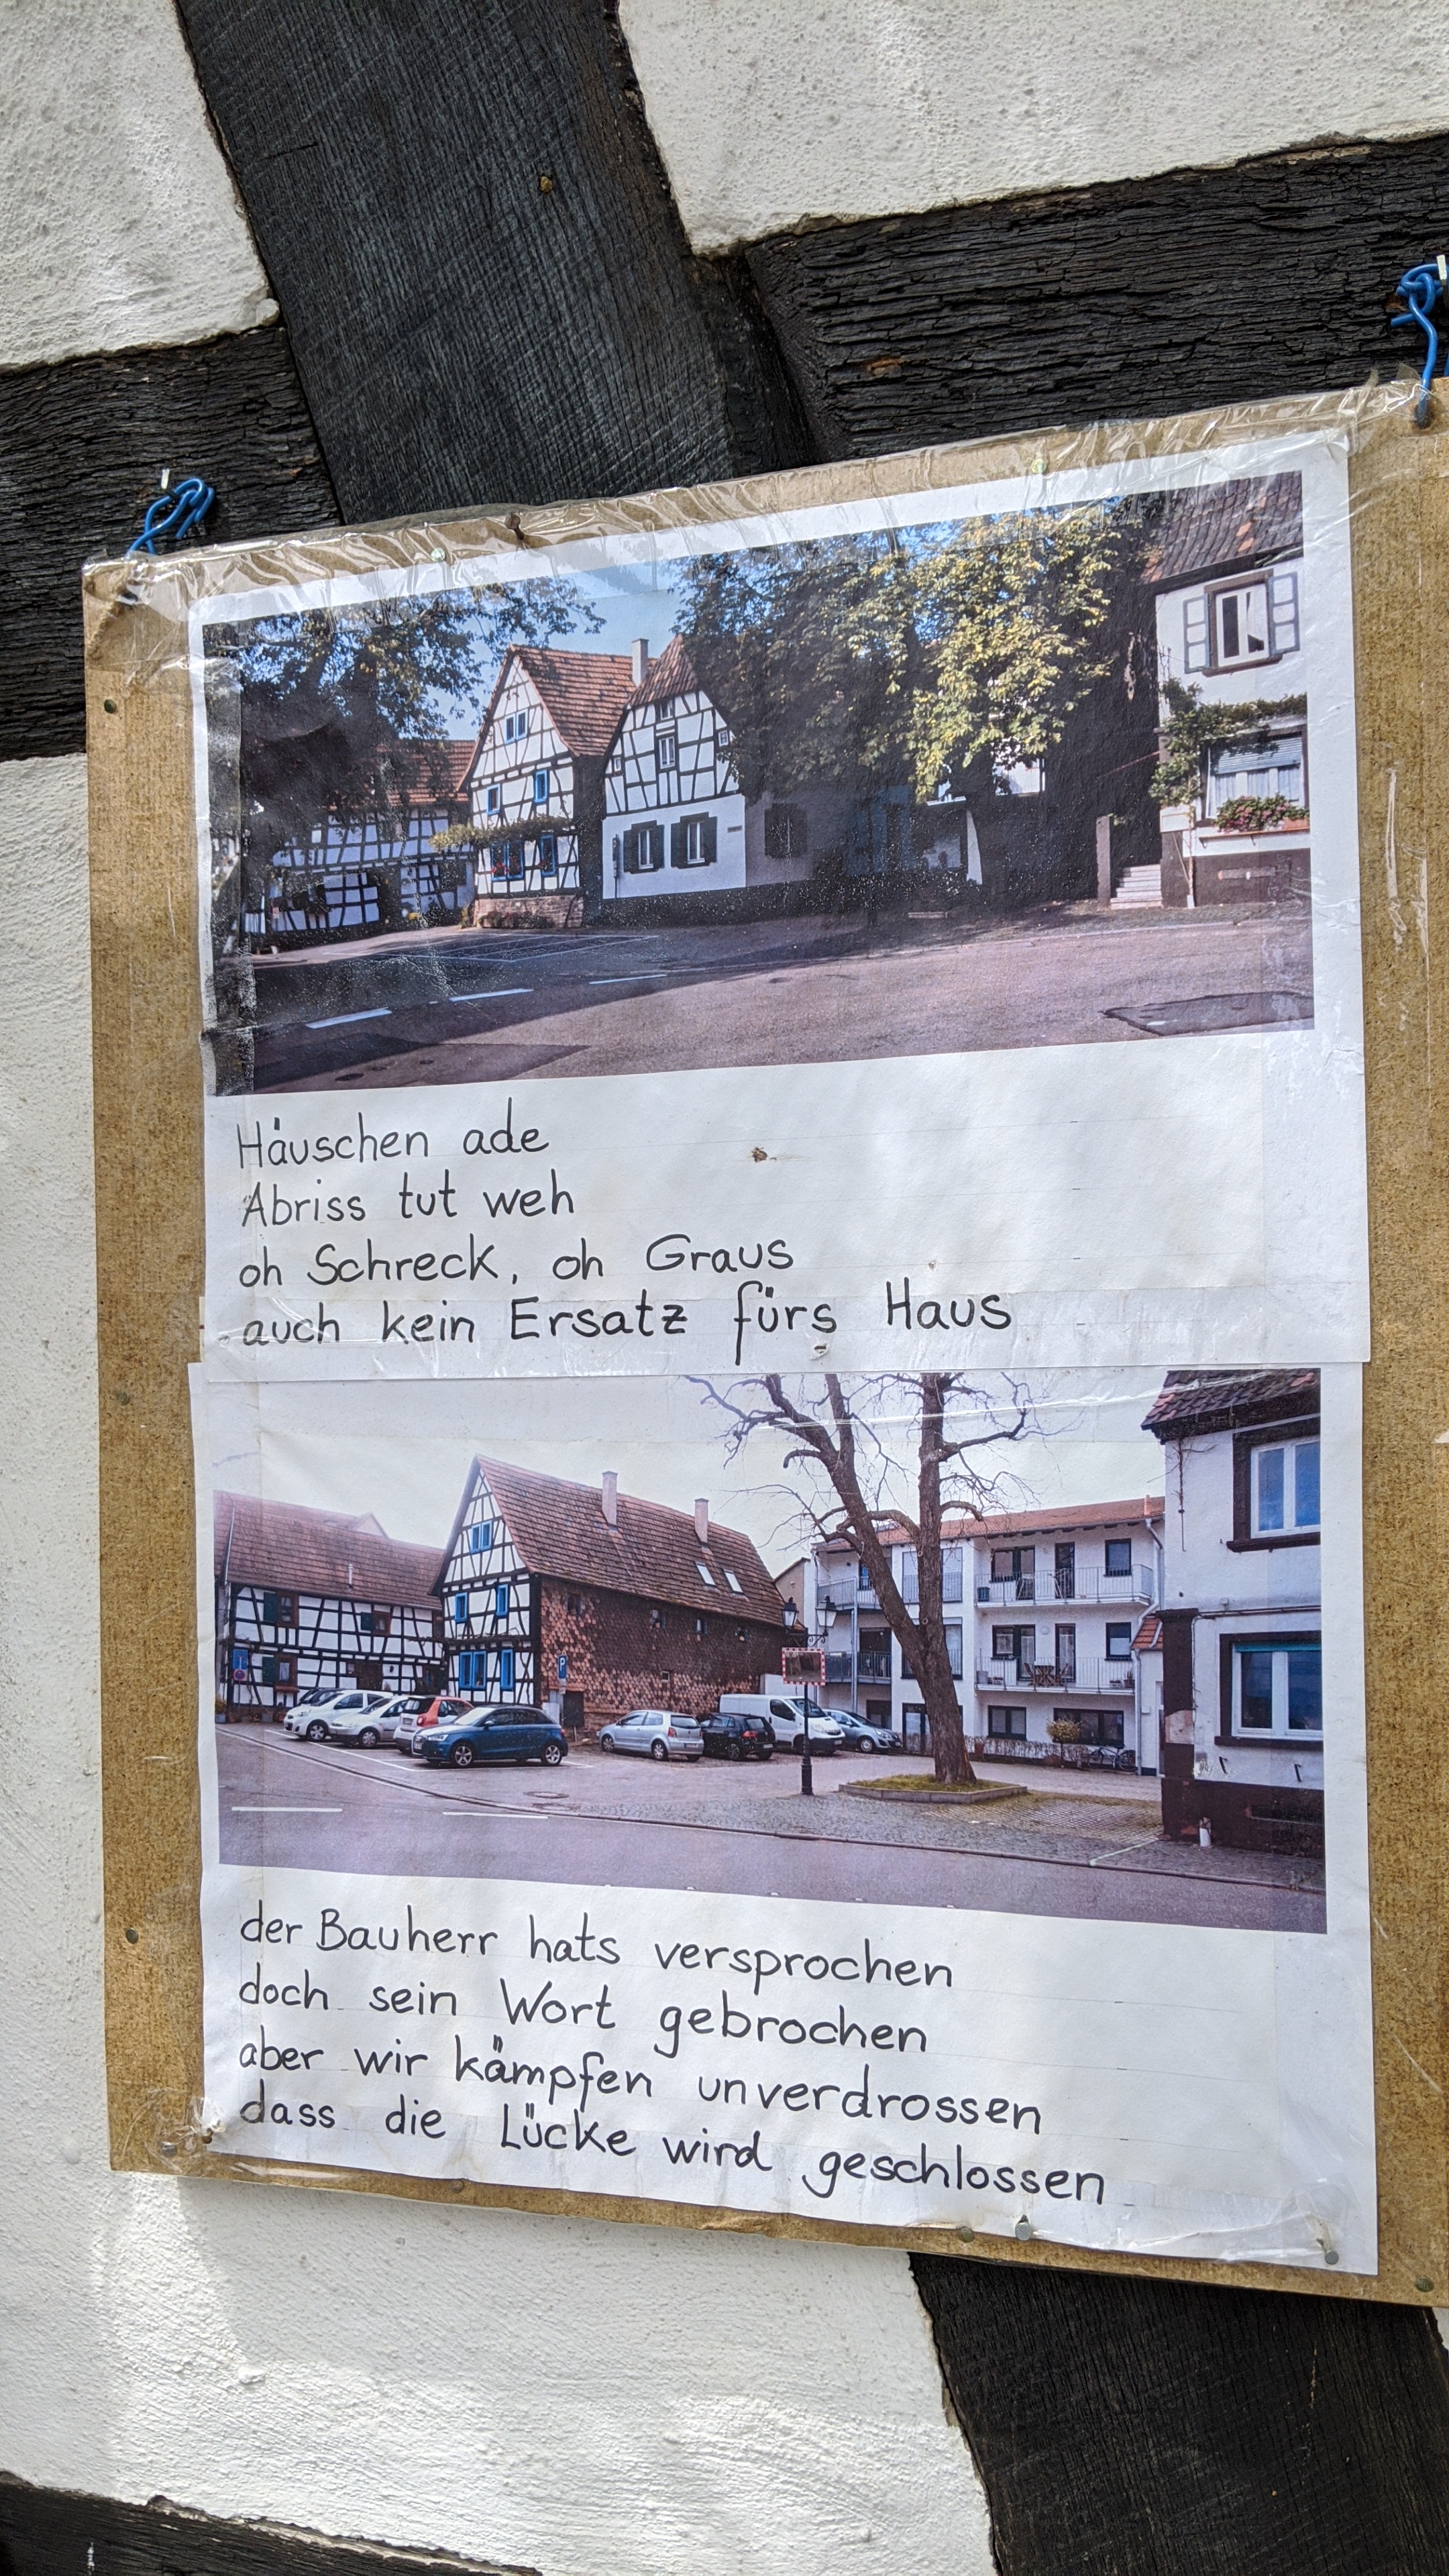 Häuschen ade
Abriss tut weh
oh Schreck, oh Graus
auch kein Ersatz fürs Haus
P
der Bauherr hats versprochen
doch sein Wort gebrochen
aber wir kämpfen unverdrossen
dass die Lücke wird geschlossen